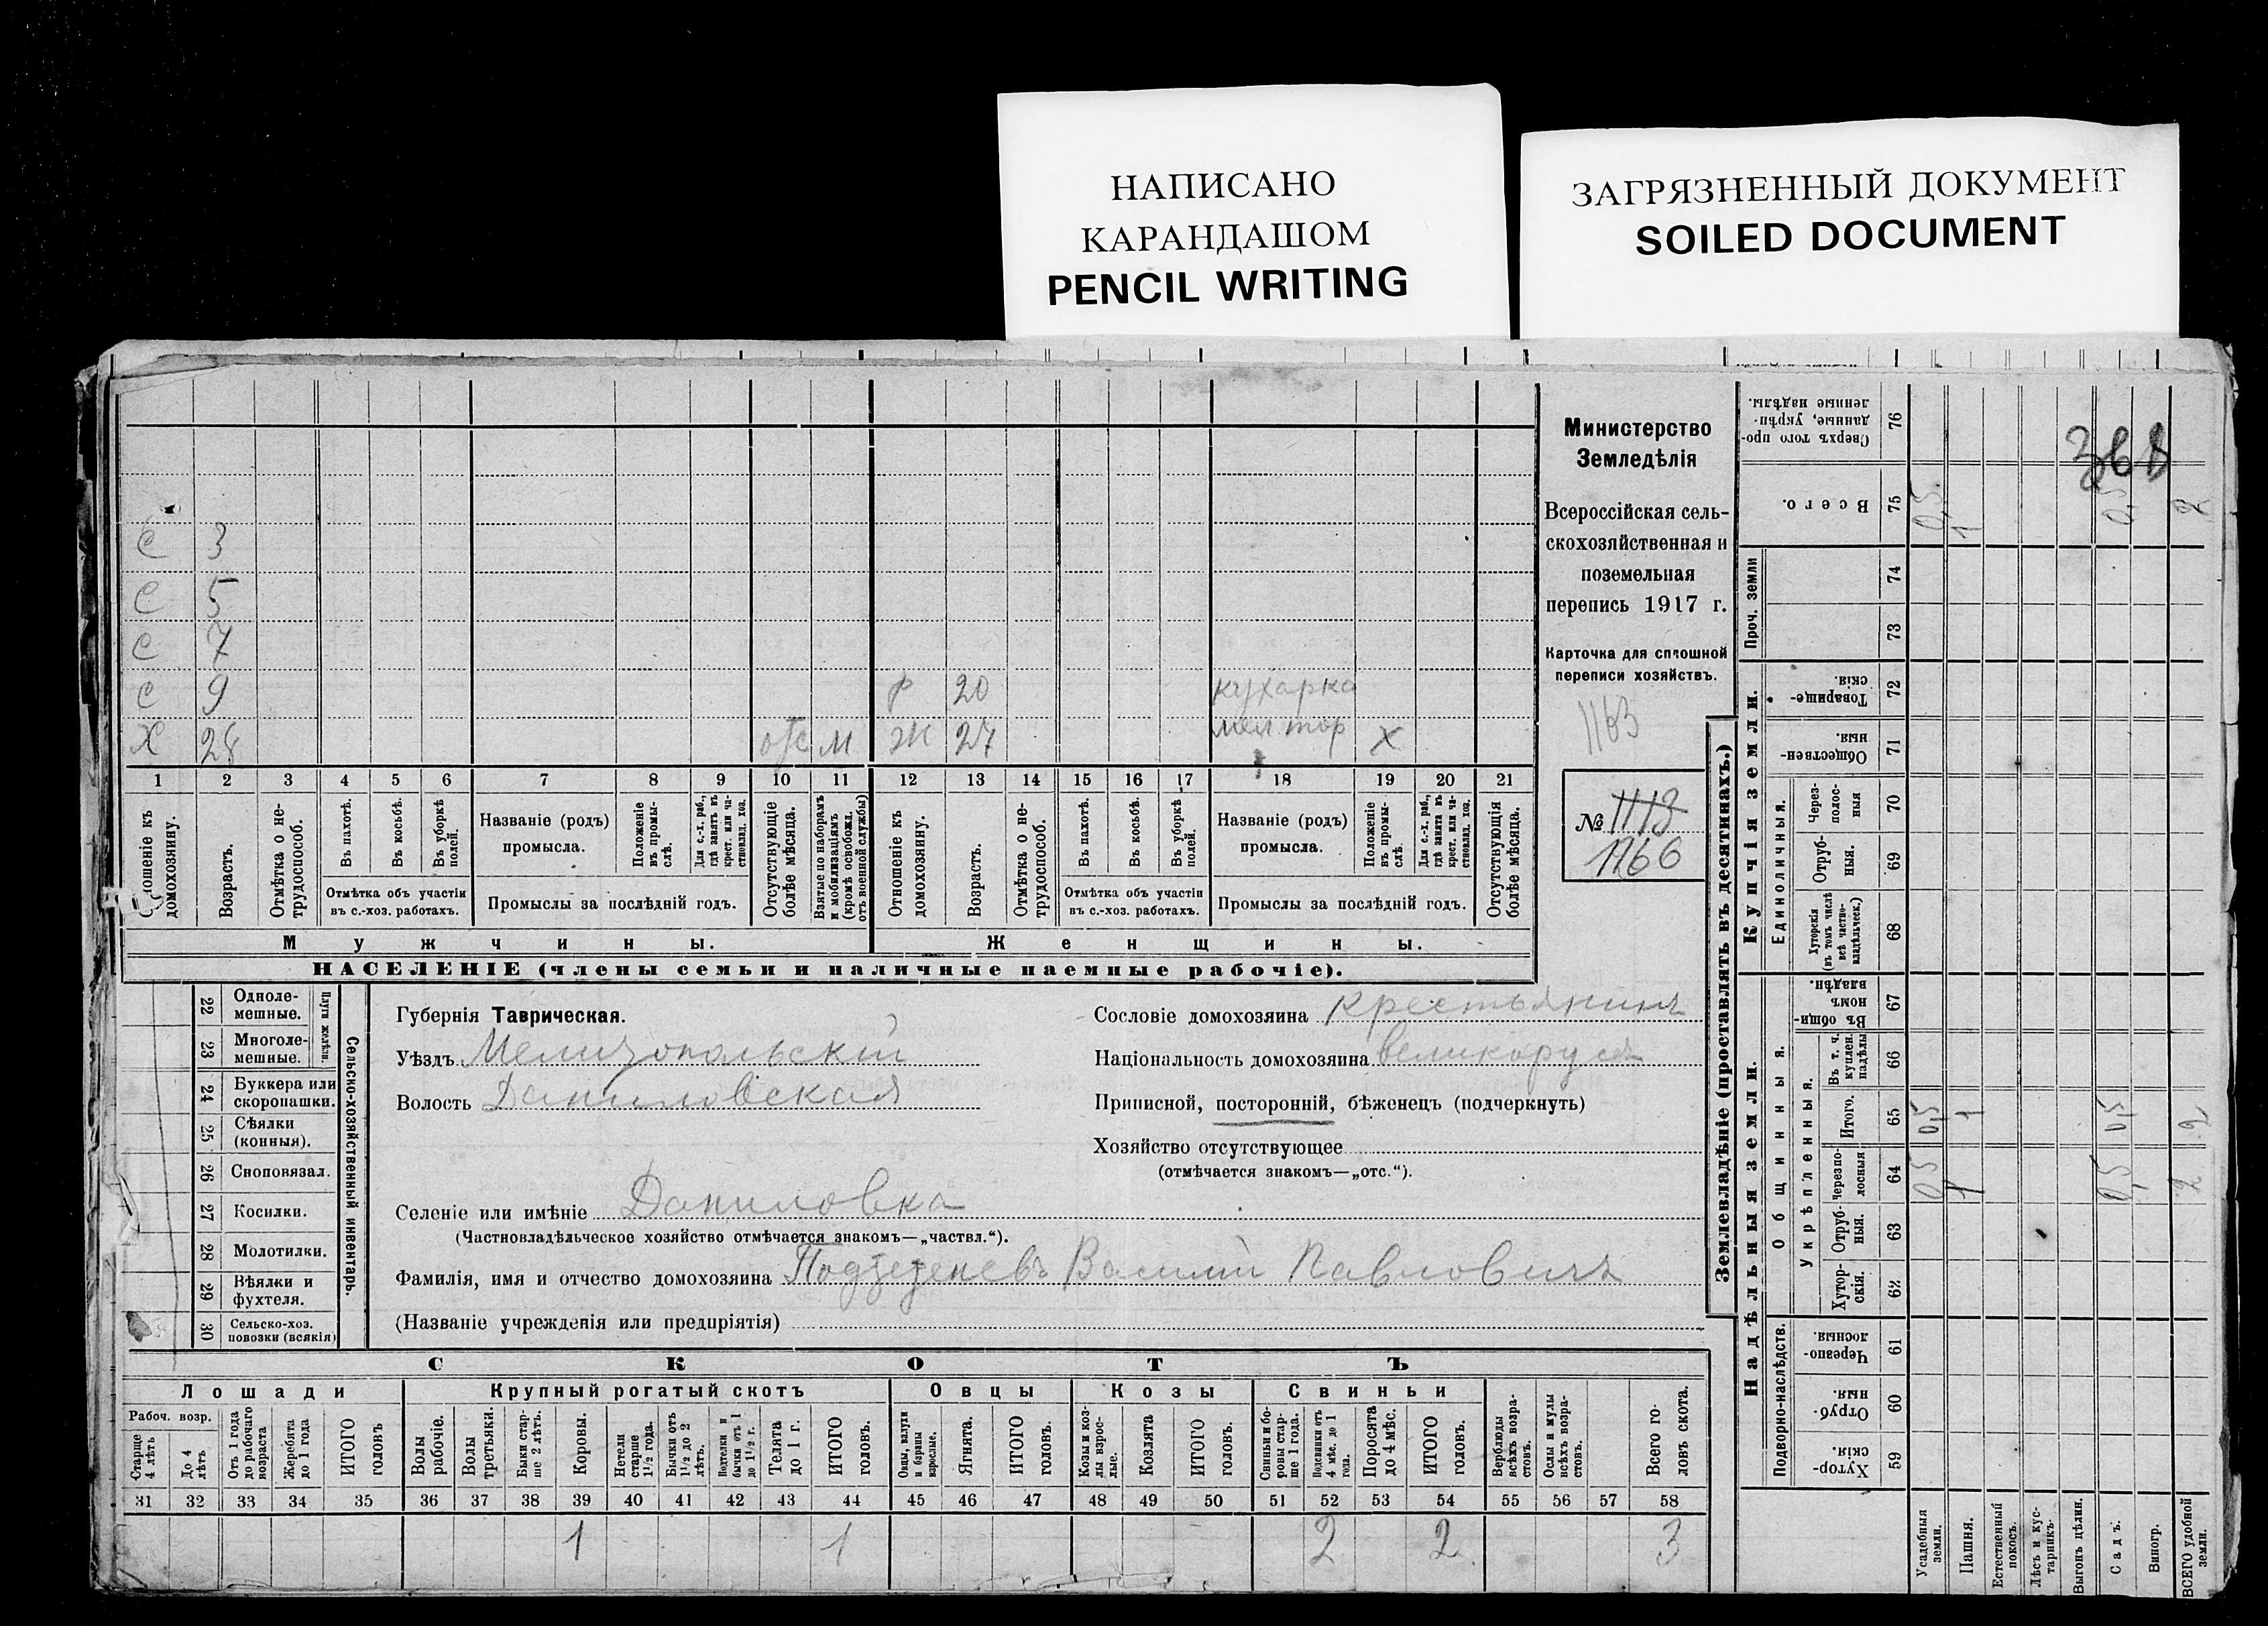 НАПИСАНО
КАРАНДАШОМ
PENCIL WRITING
ЗАГРЯЗНЕННЫЙ ДОКУМЕНТ
SOILED DOCUMENT
368
Министерство
Земледѣлія
Всероссійская сель-
скохозяйственная и
поземельная
перепись 1917 г.
Карточка для сплошной
переписи хозяйствъ.
1163
№ 1113
1166
С 3
С 5
С 7
С 9 Р 20 кухарка
Х 28 отс М Ж 27 мел тор Х
1 2 3 4 5 6 7 8 9 10 11 12 13 14 15 16 17 18 19 20 21
домохозяину.
Возрастъ.
Отмѣтка о не-
трудоспособ.
Въ пахотѣ.
Въ косьбѣ.
Въ уборкѣ
полей.
Отмѣтка объ участіи
въ с.-хоз. работахъ.
Названіе (родъ)
промысла.
Положеніе
въ промы-
слѣ.
Для с.-х. раб.,
гдѣ занятъ въ
крест. или ча-
ствовлад. хоз.
Промыслы за послѣдній годъ.
Отсутствующіе
болѣе мѣсяца.
Взятые по наборамъ
и мобилизаціямъ
(кромѣ освобожд.
отъ военной службы)
Отношеніе къ
домохозяину.
Возрастъ.
Отмѣтка о не-
трудоспособ.
Въ пахотѣ.
Въ косьбѣ.
Въ уборкѣ
полей.
Отмѣтка объ участіи
въ с.-хоз. работахъ.
Названіе (родъ)
промысла.
Положеніе
въ промы-
слѣ.
Для с.-х. раб.,
гдѣ занята въ
крест. или ча-
ствовлад. хоз.
Промыслы за послѣдній годъ.
Отсутствующія
болѣе мѣсяца.
Мужчины.
Женщины.
НАСЕЛЕНІЕ (члены семьи и наличные наемные рабочіе).
22 Одноле-
мешные.
23 Многоле-
мешные.
Плуги желѣзн.
24 Буккера или
скоропашки.
25 Сѣялки
(конныя).
26 Сноповязал.
27 Косилки.
28 Молотилки.
29 Вѣялки и
фухтеля.
30 Сельско-хоз.
повозки (всякія)
Сельско-хозяйственный инвентарь.
Губернія Таврическая.
Уѣздъ Мелитопольскій
Волость Даниловская
Селеніе или имѣніе Даниловка
(Частновладѣльческое хозяйство отмѣчается знакомъ—„частвл.“).
Фамилія, имя и отчество домохозяина Василій Павловичъ
(Названіе учрежденія или предпріятія)
Сословіе домохозяина крестьянинъ
Національность домохозяина великорусъ
Приписной, посторонній, бѣженецъ (подчеркнуть)
Хозяйство отсутствующее
(отмѣчается знакомъ—„отс.“).
СКОТЪ
Лошади
Крупный рогатый скотъ
Овцы
Козы
Свиньи
Рабоч. возр.
Старше
4 лѣтъ
До 4
лѣтъ
Отъ 1 года
до рабочаго
возраста
Жеребята
до 1 года
ИТОГО
головъ
Волы
рабочіе.
Волы
третьяки.
Быки стар-
ше 2 лѣтъ.
Коровы.
Нетели
старше
1½ года.
Бычки отъ
1½ до 2
лѣтъ.
Подтелки и
бычки отъ 1
до 1½ г.
Телята
до 1 г.
ИТОГО
головъ.
Овцы, валухи
и бараны
взрослые.
Ягнята.
ИТОГО
головъ.
Козы и коз-
лы взрос-
лые.
Козлята
ИТОГО
головъ.
Свиньи и бо-
ровы стар-
ше 1 года.
Подсвинки отъ
4 мѣс. до 1
года.
Поросята
до 4 мѣс.
ИТОГО
головъ.
Верблюды
всѣхъ возра-
стовъ.
Ослы и мулы
всѣхъ возра-
стовъ.
Всего го-
ловъ скота.
31 32 33 34 35 36 37 38 39 40 41 42 43 44 45 46 47 48 49 50 51 52 53 54 55 56 57 58
1 1 2 2 3
Землевладѣніе (проставлять въ десятинахъ.)
Купчія земли.
Надѣльныя земли.
Сверхъ того про-
данные, укрѣп-
ленные надѣлы.
76
Всего.
75 0,5 1 0,5 2
Проч. земли
74
73
Товарище-
скія.
72
Обществен-
ныя.
71
Единоличныя.
Через-
полос-
ныя
70
Отруб-
ныя.
69
Хуторскія
(въ томъ числѣ
всѣ частно-
владѣльческ.)
68
Общинныя.
Въ общин-
номъ
владѣн.
67
Укрѣпленныя.
Въ т. ч.
куплен.
надѣлы
66
Итого.
65 0,5 1 0,5 2
Черезпо-
лосныя
64 0,5 1 0,5 2
Отруб-
ныя.
63
Хутор-
скія.
62
Подворно-наслѣдств.
Черезпо-
лосныя.
61
Отруб-
ныя.
60
Хутор-
скія.
59
Усадебныя
земли.
Пашня.
Естественный
покосъ.
Лѣсъ и кус-
тарникъ.
Выгонъ цѣлин.
Садъ.
Виногр.
ВСЕГО удобной
земли.